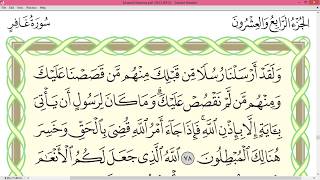 الجزء الرابع والعشرون
سورة غافر
وَلَقَدْ أَرْسَلْنَا رُسُلًا مِّن قَبْلِكَ مِنْهُم مَّن قَصَصْنَا عَلَيْكَ
وَمِنْهُم مَّن لَّمْ نَقْصُصْ عَلَيْكَ ۗ وَمَا كَانَ لِرَسُولٍ أَن يَأْتِىَ
بِـَٔايَةٍ إِلَّا بِإِذْنِ ٱللَّهِ ۚ فَإِذَا جَآءَ أَمْرُ ٱللَّهِ قُضِىَ بِٱلْحَقِّ وَخَسِرَ
هُنَالِكَ ٱلْمُبْطِلُونَ ٧٨ ٱللَّهُ ٱلَّذِى جَعَلَ لَكُمُ ٱلْأَنْعَٰمَ